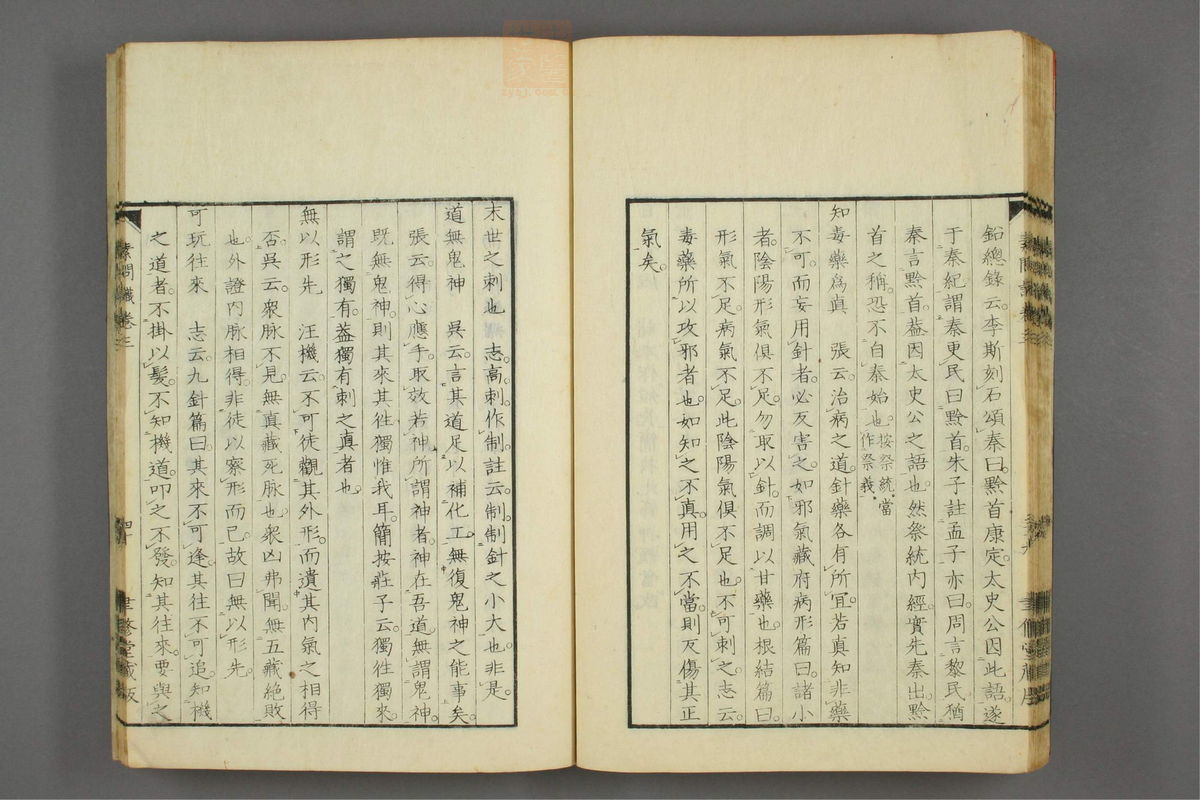 鉛總錄云李斯刻石頌秦曰黔首康定太史公因此語遂
于秦紀謂秦更民曰黔首朱子註孟子亦曰周言黎民猶
秦言黔首葢因太史公之語也然祭統內經實先秦出黔
首之稱恐不自秦始也按祭統當作祭義
知毒藥爲真 張云治病之道針藥各有所宜若真知非藥
不可而妄用針者必反害之如邪氣藏府病形篇曰諸小
者陰陽形氣俱不足勿取以針而調以甘藥也根結篇曰
形氣不足病氣不足此陰陽氣俱不足也不可刺之志云
毒藥所以攻邪者也如知之不真用之不當則反傷其正
氣矣
末世之刺也 志高刺作制註云制制針之小大也非是
道無鬼神 吳云言其道足以補化工無復鬼神之能事矣
張云得心應手取效若神所謂神者神在吾道無謂鬼神
既無鬼神則其來其徃獨惟我耳簡按莊子云獨徃獨來
謂之獨有葢獨有刺之真者也
無以形先 汪機云不可徒觀其外形而遺其內氣之相得
否吳云衆脉不見無真藏死脉也衆凶弗聞無五藏絕敗
也外證內脉相得非徒以察形而已故曰無以形先
可玩往來 志云九針篇曰其來不可逢其往不可追知機
之道者不掛以髮不知機道叩之不發知其往來要與之
素問識卷三
四十
聿修堂藏板